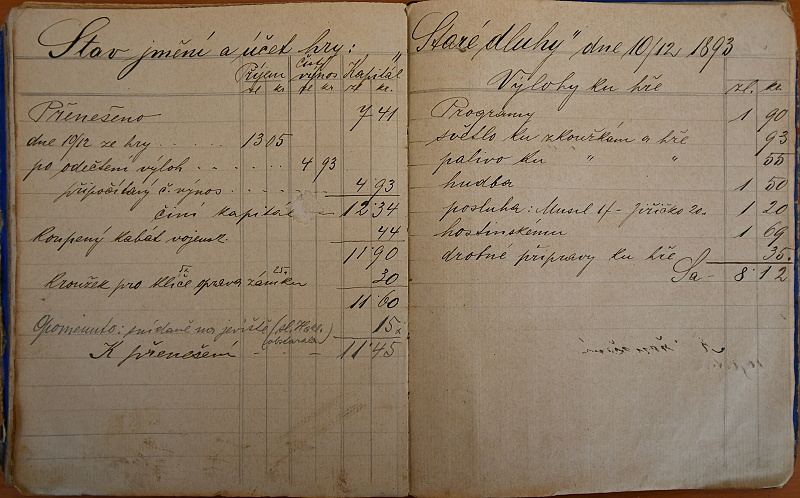 Stav jmění a účet hry: „Staré dluhy" dne 10/12 1893
Příjem Čistý výnos Kapitál
zl. kr. zl. kr. zl. kr.
Přenešeno 7 41
dne 10/12 ze hry 13 05
po odečtení výloh 4 93
připočítavý č. výnos 4 93
činí kapitál 12 34
koupený kabát vojensk. 44
11 90
kroužek pro klíče 5x oprava zámku 25x 30
11 60
Opomenuto: snídaně na jeviště (obstarala) 15x
K přenešení 11 45
Výlohy ku hře zl. kr.
Programy 1 90
světlo ku zkouškám a hře 93
palivo ku " " 55
hudba 1 50
posluha: Musil 1f - Jiřičko 20x 1 20
hostinskému 1 69
drobné přípravy ku hře 35
Sa - 8 12